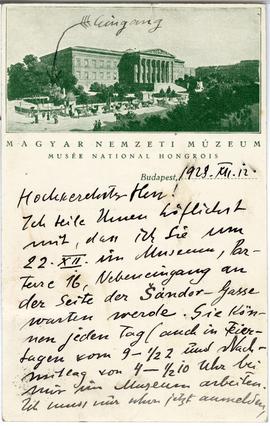 Eingang
MAGYAR NEMZETI MÚZEUM
MUSÉE NATIONAL HONGROIS
Budapest, 1929. XII. 12.
Hochverehrter Herr!
Ich teile Ihnen höflichst
mit, dass ich Sie um
22. XII. im Museum, Par-
terre 16, Nebeneingang an
der Seite der Sándor-Gasse
warten werde. Sie kön-
nen jeden Tag (auch in Feier-
tagen vom 9-1/22 und Nach-
mittag von 4-1/210 Uhr bei
mir im Museum arbeiten.
Ich muss nur jetzt anmelden,